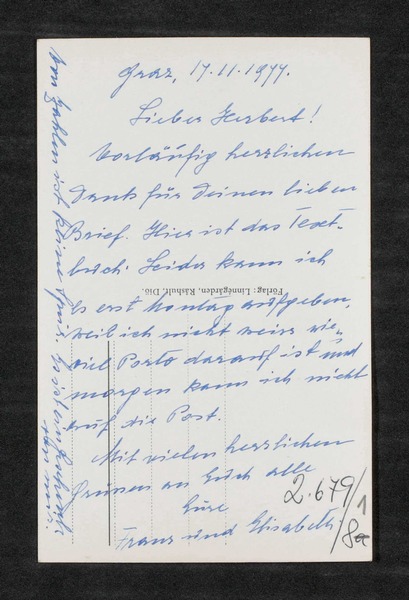 Graz, 17.11.1977.
Lieber Herbert!
Vorläufig herzlichen
Dank für Deinen lieben
Brief. Hier ist das Text-
buch. Leider kann ich
es erst Montag aufgeben,
weil ich nicht weiss wie-
viel Porto darauf ist und
morgen kann ich nicht
auf die Post.
Mit vielen herzlichen
Grüssen an Euch alle
Eure
Franz und Elisabeth
Von Zahlen ist keine Spur.
von uns.
Förlag: Linnégården, Råshult, Dio.
2.679/1
/8a